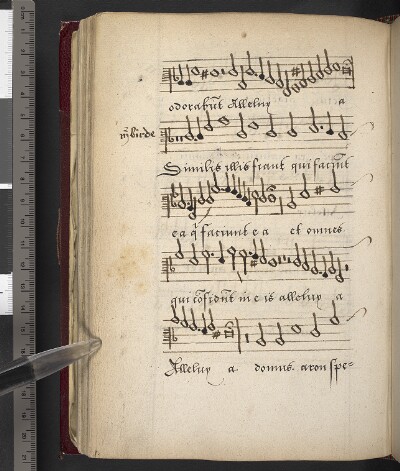 odorabūt Alleluy a
mr birde
Similes illis fiant qui faciūt
ea q̄ faciunt ea et omnes
qui cōfidūt in eis alleluy a
Alleluy a domus aron spe=